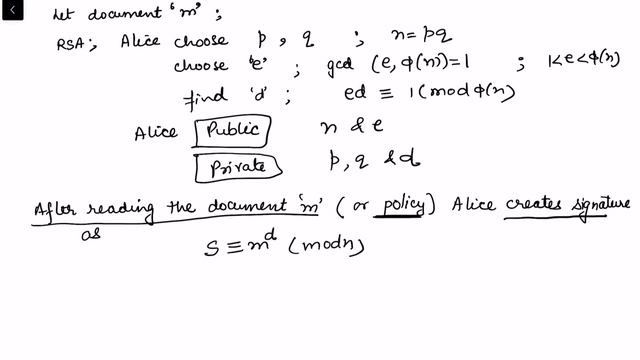 Let document 'm' ;
RSA; Alice choose p, q ; n=pq
choose 'e' ; gcd (e, φ(n))=1 ; 1<e<φ(n)
find 'd' ; ed ≡ 1(mod φ(n))
Alice Public n & e
Private p, q & d
After reading the document 'm' (or policy) Alice creates signature
as
S ≡ m^d (mod n)